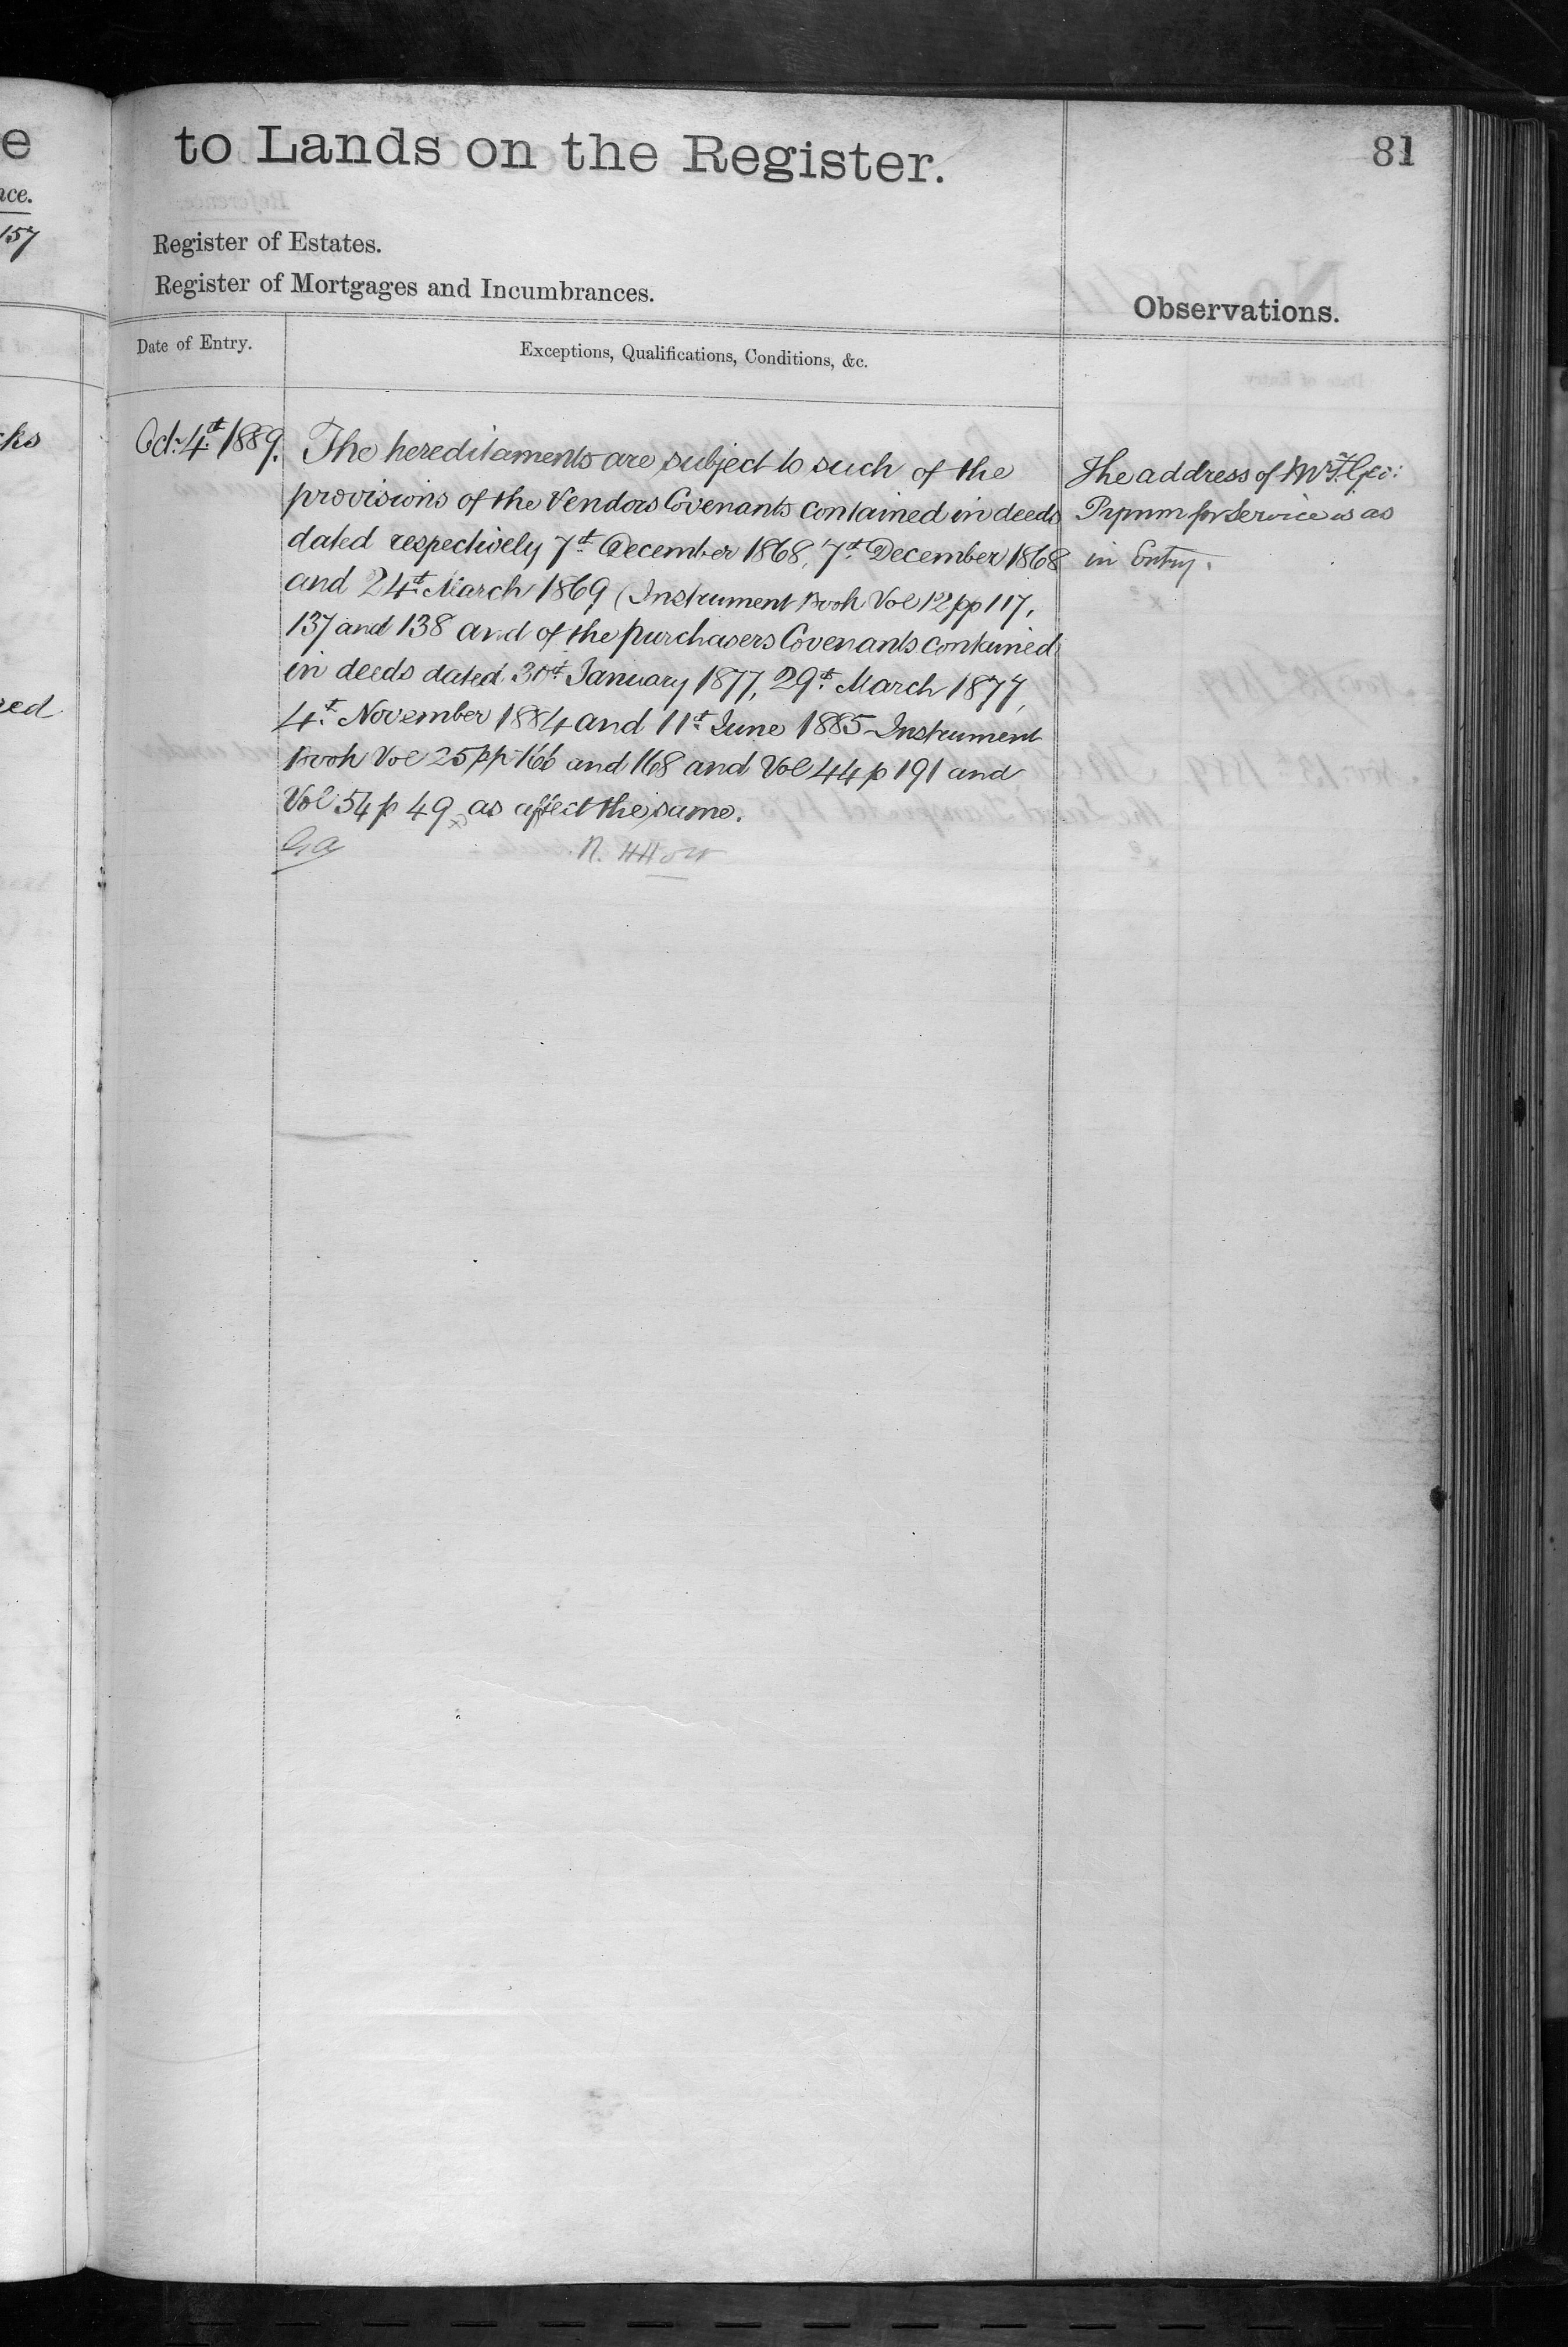 to Lands on the Register.
81
Register of Estates.
Register of Mortgages and Incumbrances.
Observations.
Date of Entry.
Exceptions, Qualifications, Conditions, &c.
Oct. 4th 1889.
The hereditaments are subject to such of the
provisions of the Vendors Covenants contained in deeds
dated respectively 7th December 1868, 7th December 1868
and 24th March 1869 (Instrument Book Vol 12 pp 117,
137 and 138 and of the purchasers Covenants contained
in deeds dated 30th January 1877, 29th March 1877,
4th November 1884 and 11th June 1885 - Instrument
Book Vol 25 pp 166 and 168 and Vol 44 p 191 and
Vol 54 p 49 as affect the same.
The address of Mr
for Service is as
in Entry.
e
nce.
157
cks
red